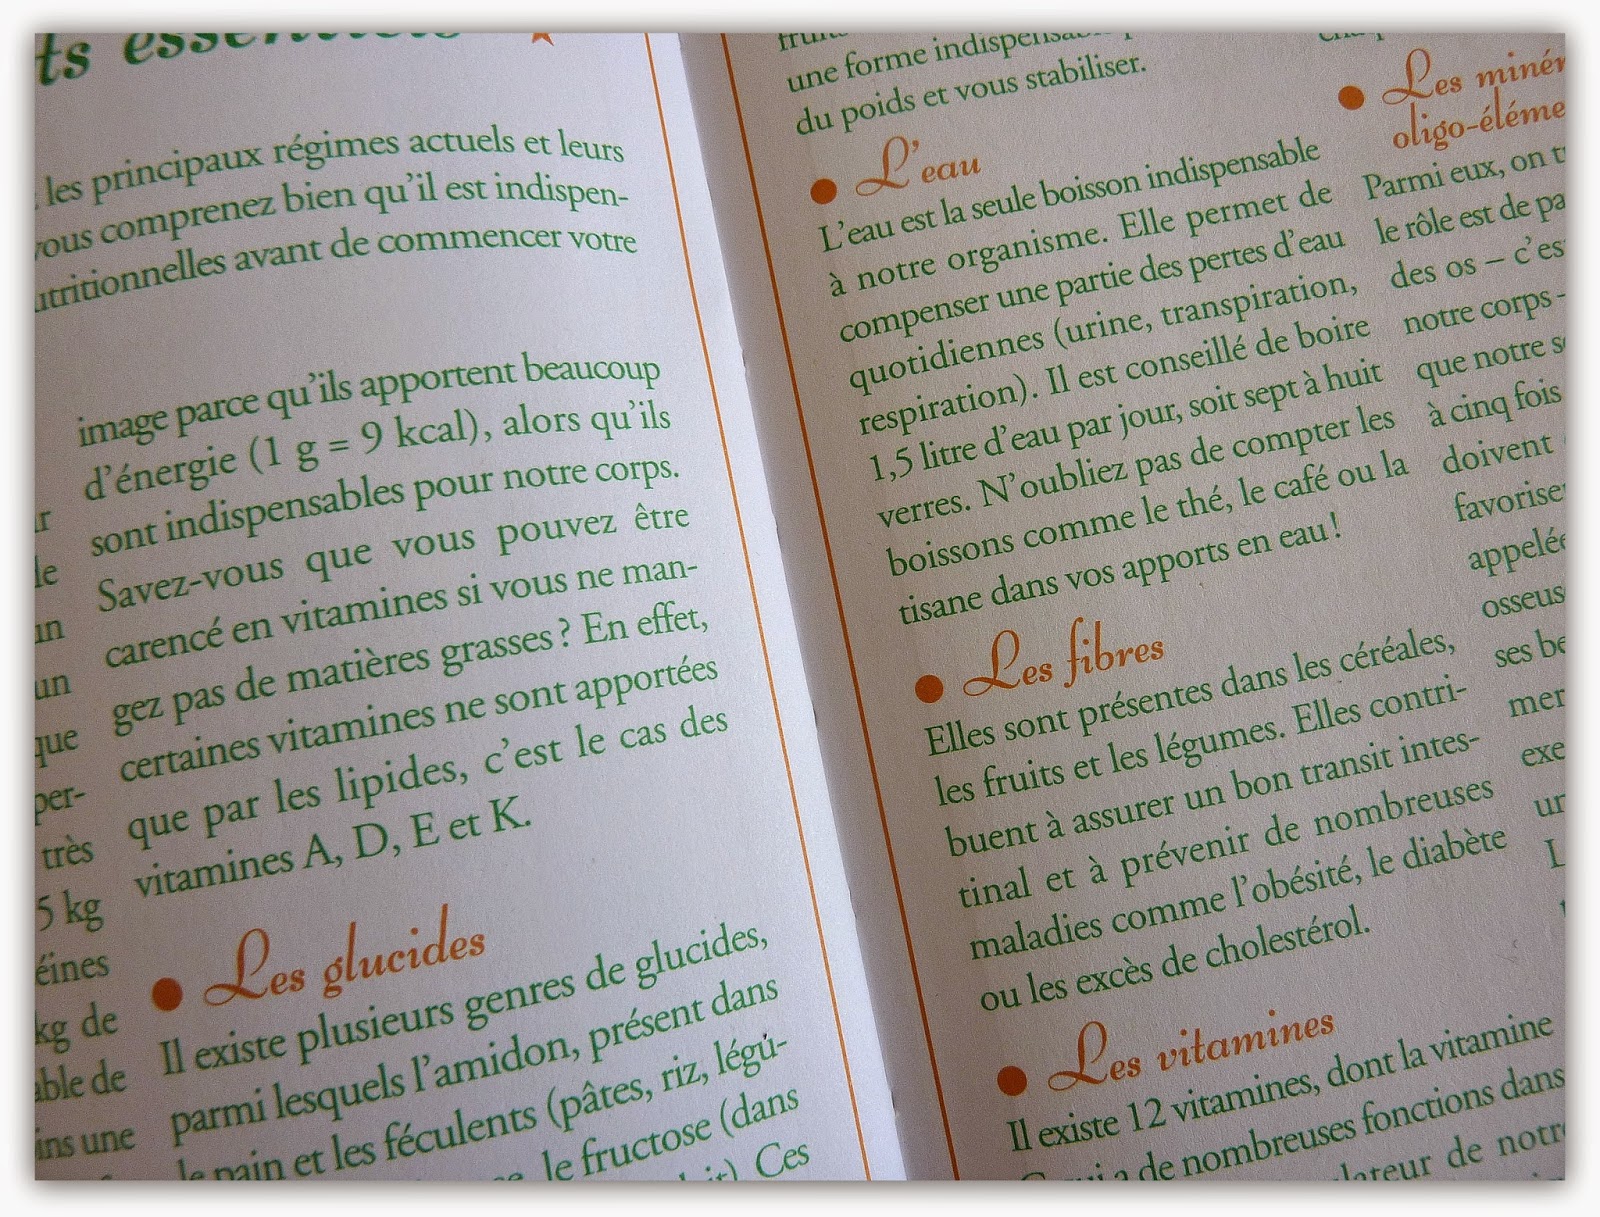 ts essentiels
les principaux régimes actuels et leurs
vous comprenez bien qu'il est indispen-
utritionnelles avant de commencer votre
le
un
un
que
per-
très
5 kg
éines
kg de
able de
ins une
image parce qu'ils apportent beaucoup
d'énergie (1 g = 9 kcal), alors qu'ils
sont indispensables pour notre corps.
Savez-vous que vous pouvez être
carencé en vitamines si vous ne man-
gez pas de matières grasses ? En effet,
certaines vitamines ne sont apportées
que par les lipides, c'est le cas des
vitamines A, D, E et K.
• Les glucides
Il existe plusieurs genres de glucides,
parmi lesquels l'amidon, présent dans
le pain et les féculents (pâtes, riz, légu-
le fructose (dans
Ces
fruits
une forme indispensable
du poids et vous stabiliser.
• L'eau
L'eau est la seule boisson indispensable
à notre organisme. Elle permet de
compenser une partie des pertes d'eau
quotidiennes (urine, transpiration,
respiration). Il est conseillé de boire
1,5 litre d'eau par jour, soit sept à huit
verres. N'oubliez pas de compter les
boissons comme le thé, le café ou la
tisane dans vos apports en eau !
• Les fibres
Elles sont présentes dans les céréales,
les fruits et les légumes. Elles contri-
buent à assurer un bon transit intes-
tinal et à prévenir de nombreuses
maladies comme l'obésité, le diabète
ou les excès de cholestérol.
• Les vitamines
Il existe 12 vitamines, dont la vitamine
de nombreuses fonctions dans
de notr
• Les minér
oligo-éléme
Parmi eux, on t
le rôle est de pa
des os – c'es
notre corps –
que notre s
à cinq fois
doivent
favorise
appelée
osseus
ses be
mer
exe
ur
L